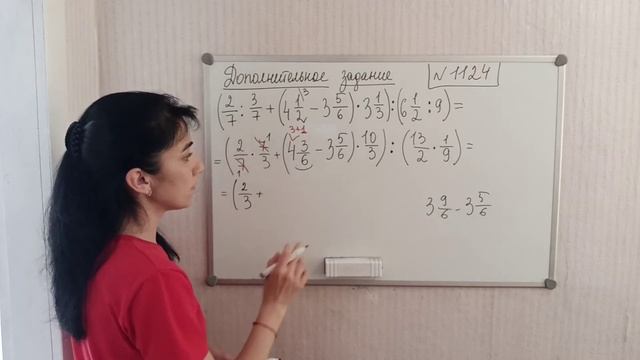 Дополнительное задание
N 1124
(2/7 : 3/7 + (4 1/2 ³ − 3 5/6) · 3 1/3) : (6 1/2 : 9) =
3+1
= (2/7 · 7/3 + (4 3/6 − 3 5/6) · 10/3) : (13/2 · 1/9) =
= (2/3 +
3 9/6 − 3 5/6